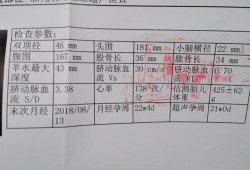 检查参数:
双顶径 46 mm 头围 181 mm 小脑横径 22 mm
腹围 167 mm 股骨长 36 mm 肱骨长 34 mm
羊水最大深度 43 mm 脐动脉血流 Vs 30 cm/s 脐动脉血流 0.70
脐动脉血流 S/D 3.38 心率 138 次/分 估测胎儿体重 425±62 g
末次月经 2018/08/13 月经孕周 22*4d 超声孕周 21*0d